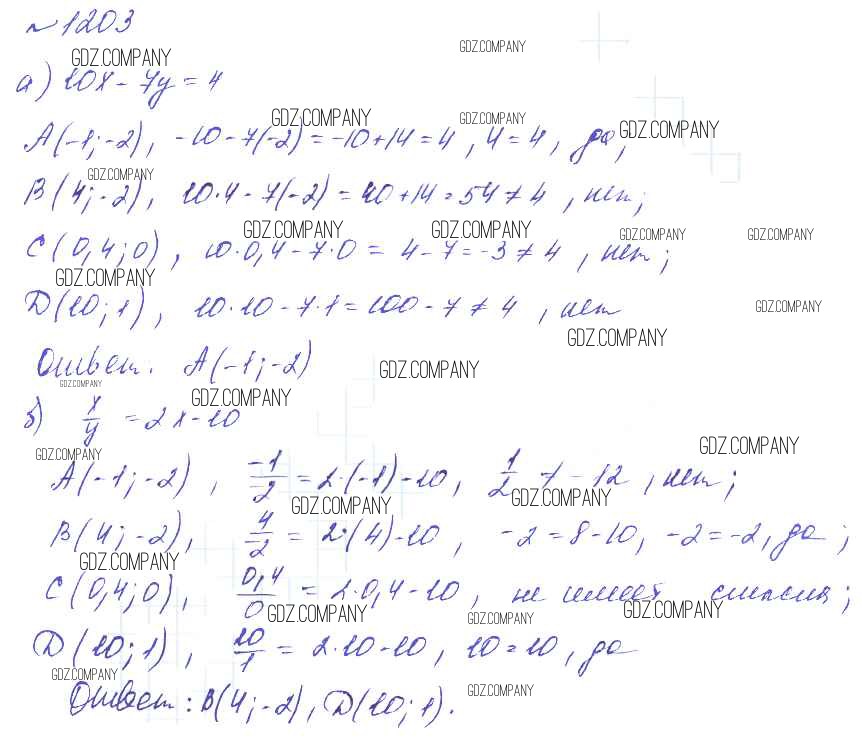 №1203
GDZ.COMPANY
GDZ.COMPANY
а) 10x - 7y = 4
GDZ.COMPANY
GDZ.COMPANY
GDZ.COMPANY
A(-1;-2), -10-7(-2)=-10+14=4, 4=4, да,
GDZ.COMPANY
B(4;-2), 10·4-7(-2)=40+14=54≠4, нет;
GDZ.COMPANY
GDZ.COMPANY
GDZ.COMPANY
GDZ.COMPANY
C(0,4;0), 10·0,4-7·0=4-7=-3≠4, нет;
GDZ.COMPANY
D(10;1), 10·10-7·1=100-7≠4, нет
GDZ.COMPANY
GDZ.COMPANY
Ответ. A(-1;-2)
GDZ.COMPANY
GDZ.COMPANY
GDZ.COMPANY
б) x/y = 2x-10
GDZ.COMPANY
GDZ.COMPANY
A(-1;-2), -1/-2 = 2·(-1)-10, 1/2 ≠ -12, нет;
GDZ.COMPANY
GDZ.COMPANY
B(4;-2), 4/2 = 2·(4)-10, -2=8-10, -2=-2, да;
GDZ.COMPANY
C(0,4;0), 0,4/0 = 2·0,4-10, не имеет смысла;
GDZ.COMPANY
GDZ.COMPANY
GDZ.COMPANY
D(10;1), 10/1 = 2·10-10, 10=10, да
GDZ.COMPANY
GDZ.COMPANY
Ответ: B(4;-2), D(10;1).